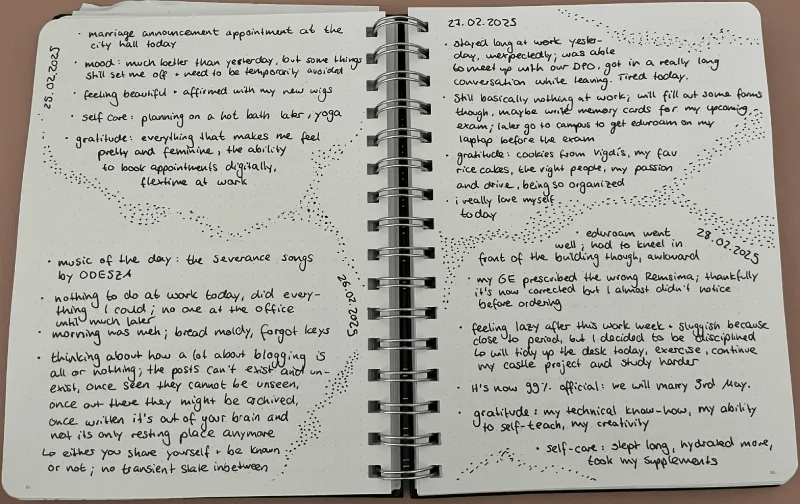 25.02.2025
· marriage announcement appointment at the
city hall today
· mood: much better than yesterday, but some things
still set me off + need to be temporarily avoided
· feeling beautiful + affirmed with my new wigs
· self care: planning on a hot bath later, yoga
· gratitude: everything that makes me feel
pretty and feminine, the ability
to book appointments digitally,
flextime at work
26.02.2025
· music of the day: the severance songs
by ODESZA
· nothing to do at work today, did every-
thing I could; no one at the office
until much later
· morning was meh; bread moldy, forgot keys
· thinking about how a lot about blogging is
all or nothing; the posts can't exist and un-
exist, once seen they cannot be unseen,
once out there they might be archived,
once written it's out of your brain and
not its only resting place anymore
↳ either you share yourself + be known
or not; no transient state inbetween
27.02.2025
· stayed long at work yester-
day, unexpectedly; was able
to meet up with our DPO, got in a really long
conversation while leaving. Tired today.
· Still basically nothing at work; will fill out some forms
though, maybe write memory cards for my upcoming
exam; later go to campus to get eduroam on my
laptop before the exam
· gratitude: cookies from Vigdis, my fav
rice cakes, the right people, my passion
and drive, being so organized
· i really love myself
today
28.02.2025
· eduroam went
well; had to kneel in
front of the building though, awkward
· my GE prescribed the wrong Remsima; thankfully
it's now corrected but I almost didn't notice
before ordering
· feeling lazy after this work week + sluggish because
close to period, but I decided to be disciplined
↳ will tidy up the desk today, exercise, continue
my castle project and study harder
· It's now 99% official: we will marry 3rd May.
· gratitude: my technical know-how, my ability
to self-teach, my creativity
· self-care: slept long, hydrated more,
took my supplements